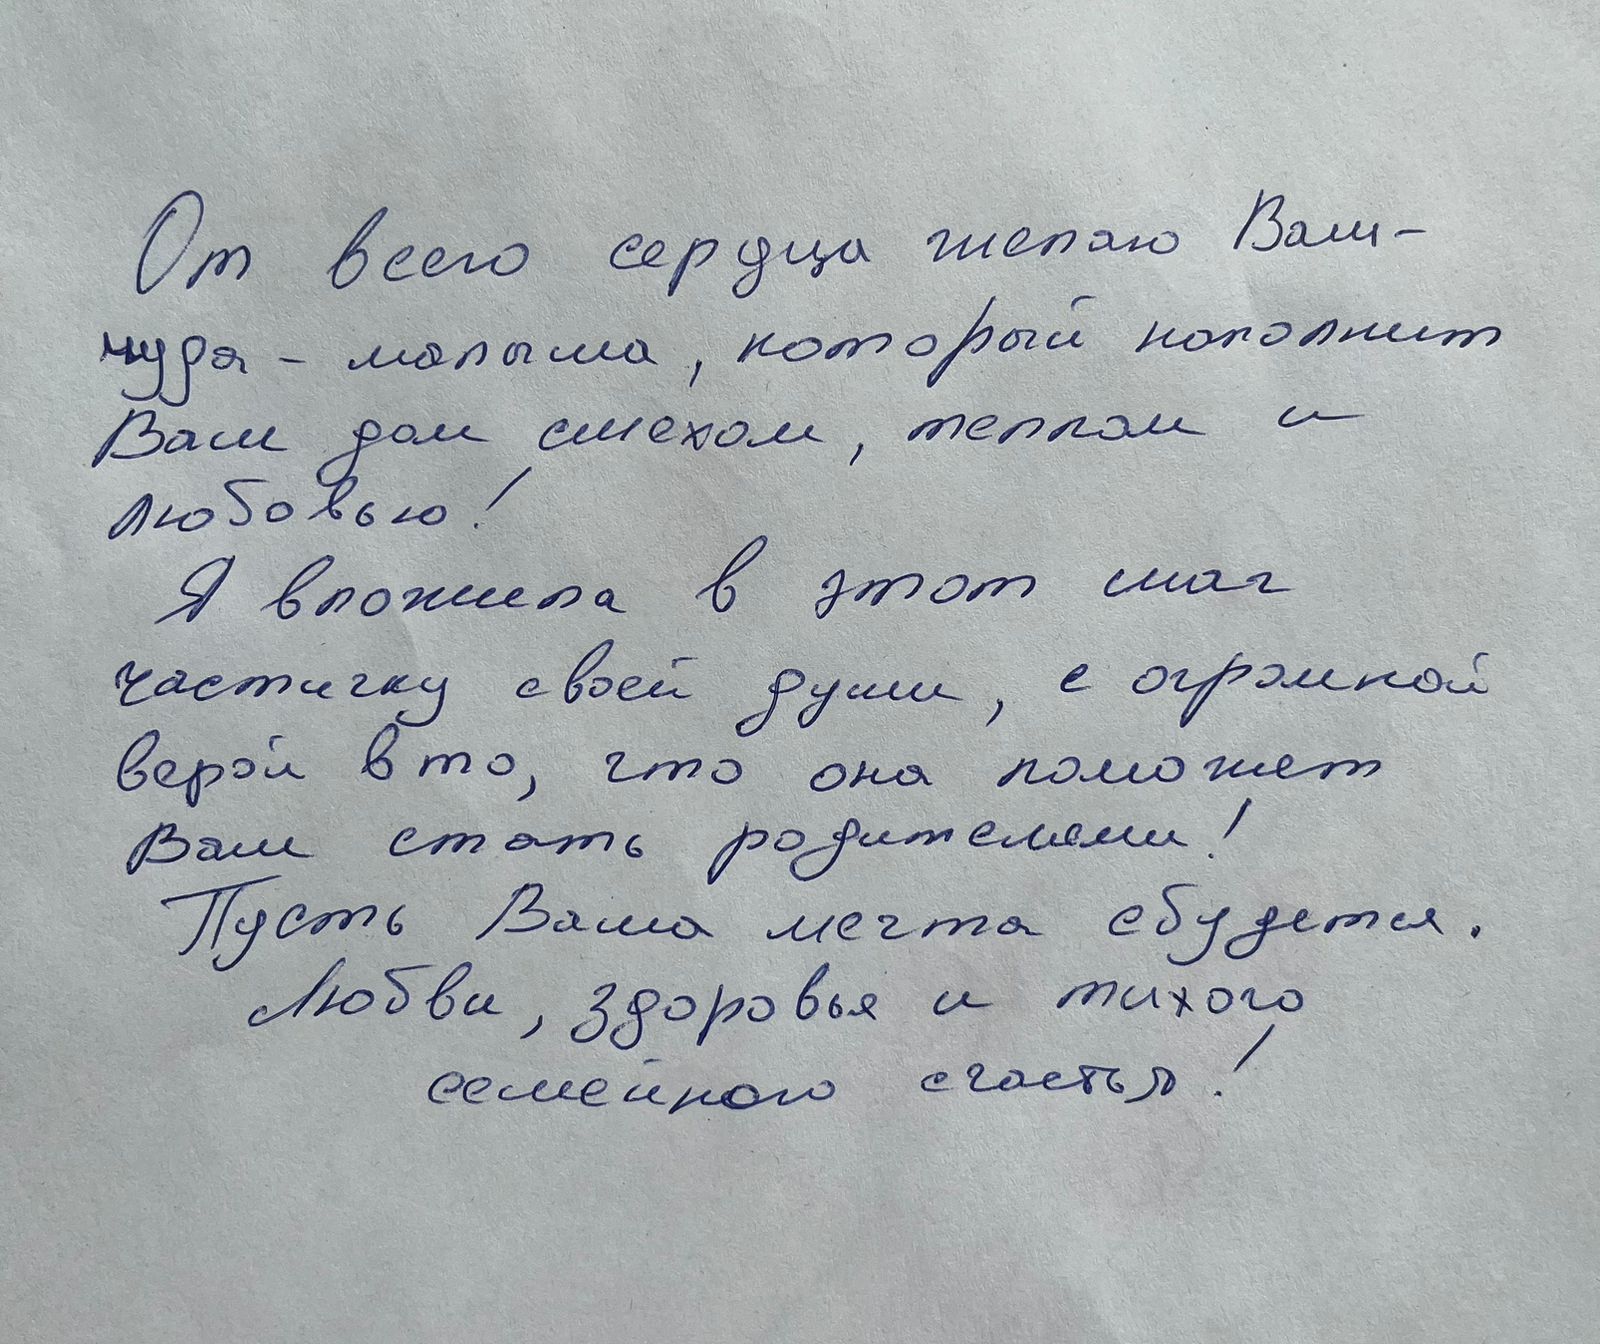 От всего сердца желаю Вам -
чуда - малыша, который наполнит
Ваш дом смехом, теплом и
любовью!
Я вложила в этот шаг
частичку своей души, с огромной
верой в то, что она поможет
Вам стать родителями!
Пусть Ваша мечта сбудется.
Любви, здоровья и тихого
семейного счастья!